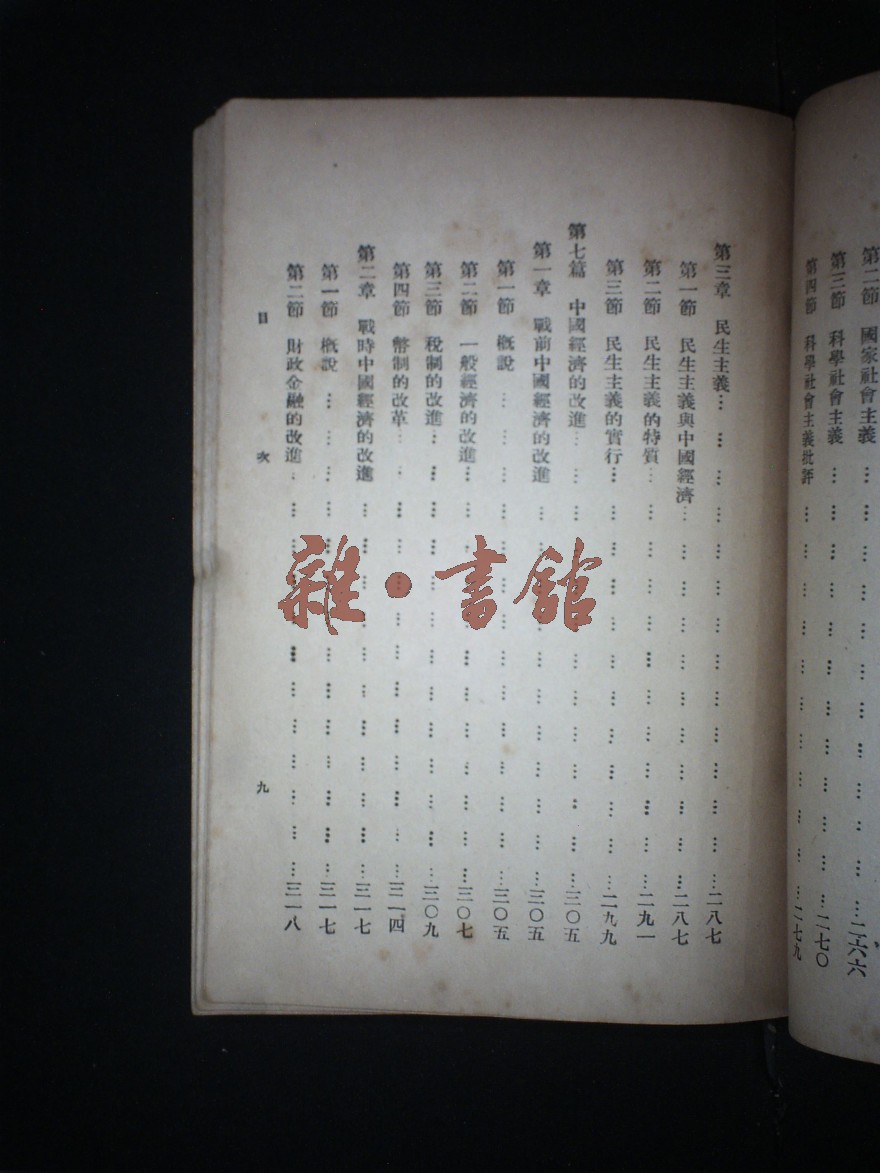 第二節 國家社會主義……二六六
第三節 科學社會主義……二七〇
第四節 科學社會主義批評……二七九
第三章 民生主義……二八七
第一節 民生主義與中國經濟……二八七
第二節 民生主義的特質……二九一
第三節 民生主義的實行……二九九
第七篇 中國經濟的改進……三〇五
第一章 戰前中國經濟的改進……三〇五
第一節 概說……三〇五
第二節 一般經濟的改進……三〇七
第三節 稅制的改進……三〇九
第四節 幣制的改革……三一四
第二章 戰時中國經濟的改進……三一七
第一節 概說……三一七
第二節 財政金融的改進……三一八
目次 九
雜·書館